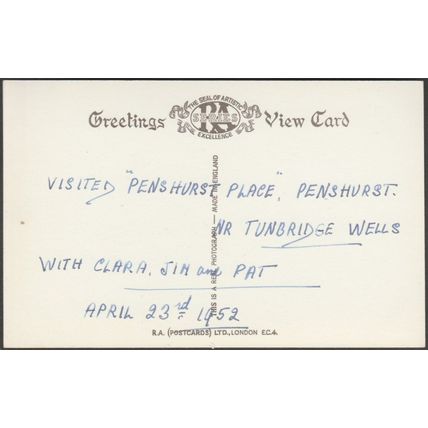 THE SEAL OF ARTISTIC
Greetings RA SERIES View Card
EXCELLENCE
VISITED "PENSHURST PLACE", PENSHURST.
NR TUNBRIDGE WELLS
WITH CLARA, JIM and PAT
APRIL 23rd 1952
THIS IS A REAL PHOTOGRAPH — MADE IN ENGLAND
R.A. (POSTCARDS) LTD., LONDON E.C.4.